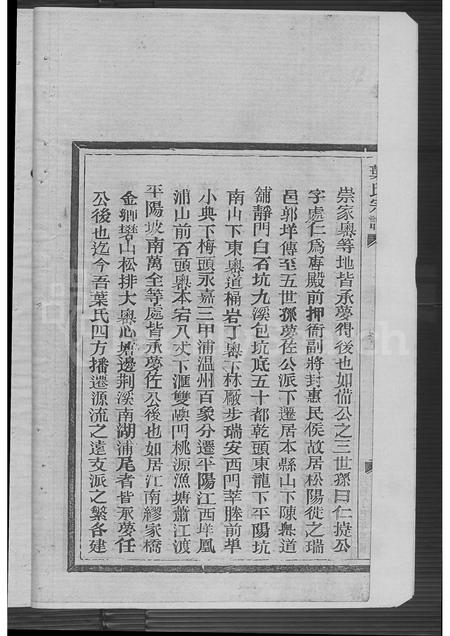 葉氏宗譜
崇家奧等地皆承夢得後也如備公之三世孫曰仁提公
字處仁爲唐殿前押衙副將封惠民侯故居松陽徙之瑞
邑郭垟傳至五世孫夢佐公派下遷居本縣山下陳奧道
舖靜門白石坑九溪包坑底五十都乾頭東龍下平陽坑
南山下東奧道桶岩丁奧下林廠步瑞安西門莘塍前埠
小典下梅頭永嘉三甲浦温州百象分遷平陽江西垟鳳
浦山前石頭奧本宕八丈下滙雙䃂門桃源漁塘蕭江渡
平陽坡南萬全等處皆承夢佐公後也如居江南繆家橋
金鄉礬山松排大奧心塘邊荆溪南湖浦尾者皆承夢任
公後也迄今吾葉氏四方播遷源流之遠支派之繁各建